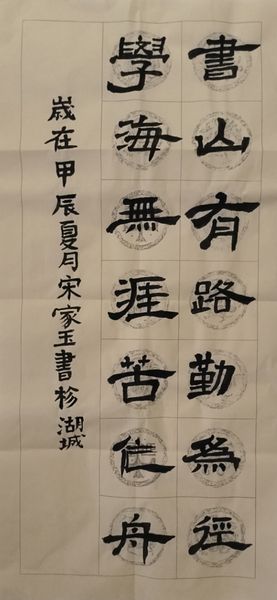 書山有路勤為徑
學海無涯苦作舟
歲在甲辰夏月宋家玉書於湖城